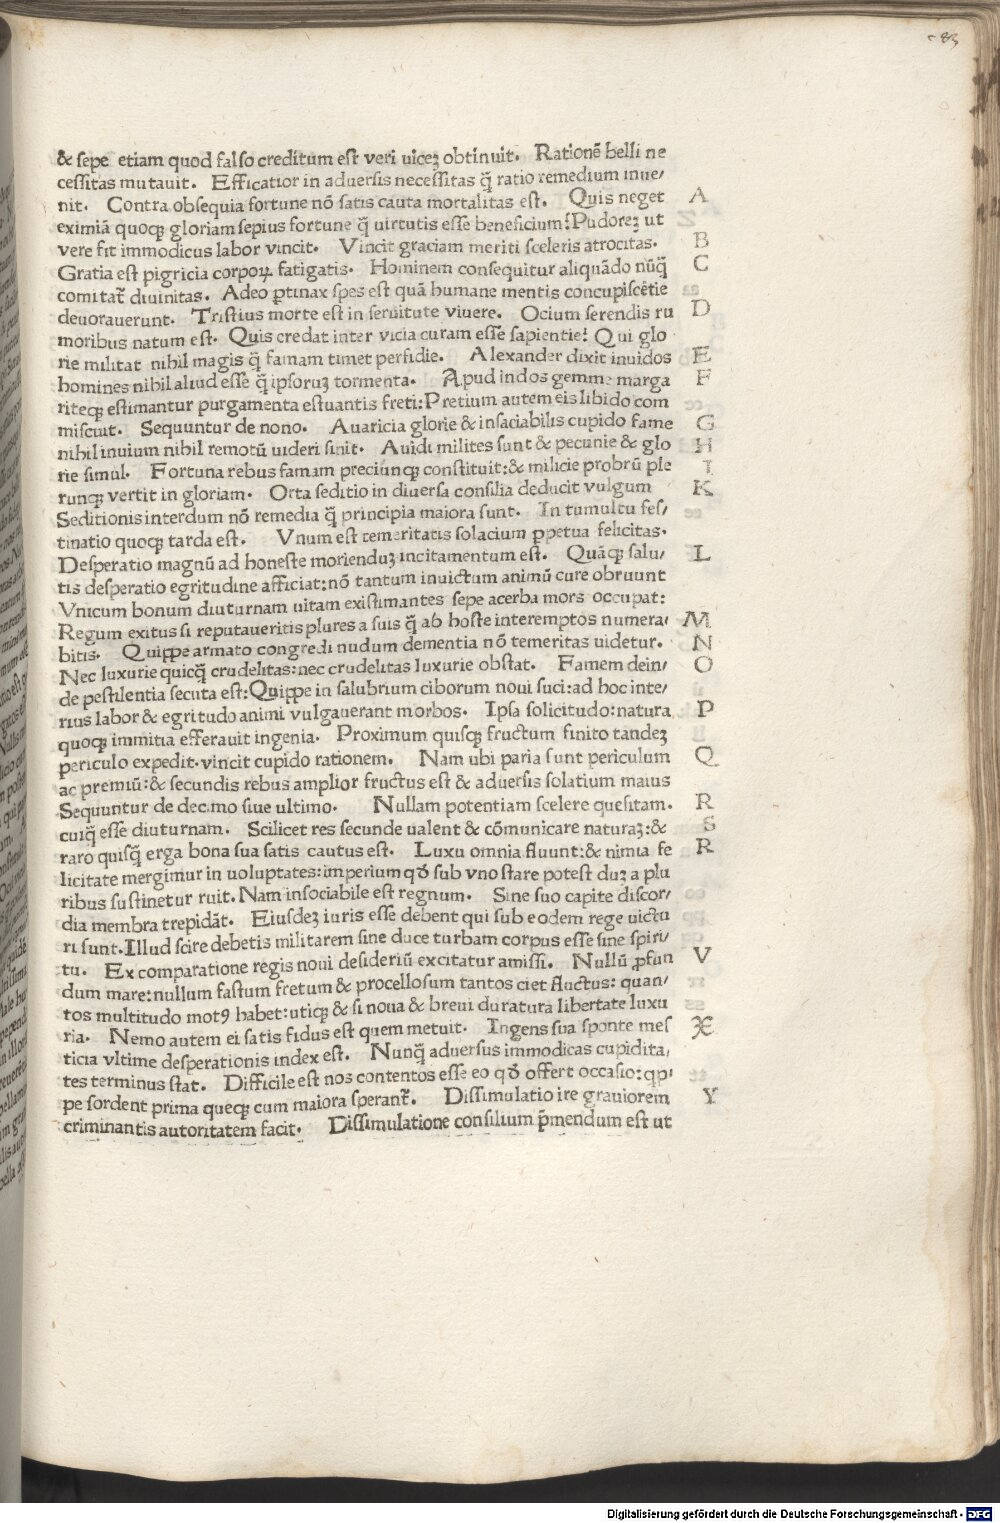 83
& sepe etiam quod falso creditum est veri uiceꝫ obtinuit. Rationē belli ne
cessitas mutauit. Efficatior in aduersis necessitas q̄ ratio remedium inue/
nit. Contra obsequia fortune nō satis cauta mortalitas est. Quis neget A
eximiā quoqꝫ gloriam sepius fortune q̄ uirtutis esse beneficium? Pudoreꝫ ut
vere fit immodicus labor vincit. Vincit graciam meriti sceleris atrocitas. B
Gratia est pigricia corpoꝝ fatigatis. Hominem consequitur aliquādo nūq̄ C
comitat᷑ diuinitas. Adeo ꝑtinax spes est quā humane mentis concupiscētie
deuorauerunt. Tristius morte est in seruitute viuere. Ocium serendis ru D
moribus natum est. Quis credat inter vicia curam esse sapientie? Qui glo
rie militat nihil magis q̄ famam timet perfidie. Alexander dixit inuidos E
homines nihil aliud esse q̄ ipsoruꝫ tormenta. Apud indos gemme marga F
riteqꝫ estimantur purgamenta estuantis freti: Pretium autem eis libido com
miscuit. Sequuntur de nono. Auaricia glorie & insaciabilis cupido fame G
nihil inuium nihil remotū uideri sinit. Auidi milites sunt & pecunie & glo H
rie simul. Fortuna rebus famam preciumqꝫ constituit: & milicie probrū ple I
runqꝫ vertit in gloriam. Orta seditio in diuersa consilia deducit vulgum K
Seditionis interdum nō remedia q̄ principia maiora sunt. In tumultu fes/
tinatio quoqꝫ tarda est. Vnum est temeritatis solacium ꝑpetua felicitas.
Desperatio magnū ad honeste morienduꝫ incitamentum est. Quāqꝫ salu/ L
tis desperatio egritudine afficiat: nō tantum inuictum animū cure obruunt
Vnicum bonum diuturnam uitam existimantes sepe acerba mors occupat:
Regum exitus si reputaueritis plures a suis q̄ ab hoste interemptos numera/ M
bitis. Quippe armato congredi nudum dementia nō temeritas uidetur. N
Nec luxurie quicq̄ crudelitas: nec crudelitas luxurie obstat. Famem dein/ O
de pestilentia secuta est: Quippe in salubrium ciborum noui suci: ad hoc inte/
rius labor & egritudo animi vulgauerant morbos. Ipsa solicitudo: natura P
quoqꝫ immitia efferauit ingenia. Proximum quisqꝫ fructum finito tandeꝫ
periculo expedit. vincit cupido rationem. Nam ubi paria sunt periculum Q
ac premiū: & secundis rebus amplior fructus est & aduersis solatium maius
Sequuntur de decimo siue ultimo. Nullam potentiam scelere quesitam. R
cuiq̄ esse diuturnam. Scilicet res secunde ualent & cōmunicare naturaꝫ: & S
raro quisq̄ erga bona sua satis cautus est. Luxu omnia fluunt: & nimia fe R
licitate mergimur in uoluptates: imperium qđ sub vno stare potest duꝫ a plu
ribus sustinetur ruit. Nam insociabile est regnum. Sine suo capite discor/
dia membra trepidāt. Eiusdeꝫ iuris esse debent qui sub eodem rege uictu
ri sunt. Illud scire debetis militarem sine duce turbam corpus esse sine spiri/
tu. Ex comparatione regis noui desideriū excitatur amissi. Nullū ꝓfun V
dum mare: nullum fastum fretum & procellosum tantos ciet fluctus: quan/
tos multitudo motꝰ habet: utiqꝫ & si noua & breui duratura libertate luxu
ria. Nemo autem ei satis fidus est quem metuit. Ingens sua sponte mes X
ticia vltime desperationis index est. Nunq̄ aduersus immodicas cupidita/
tes terminus stat. Difficile est nos contentos esse eo qđ offert occasio: qp/
pe sordent prima queqꝫ cum maiora sperant᷑. Dissimulatio ire grauiorem Y
criminantis autoritatem facit. Dissimulatione consilium p̄mendum est ut
Digitalisierung gefördert durch die Deutsche Forschungsgemeinschaft - DFG